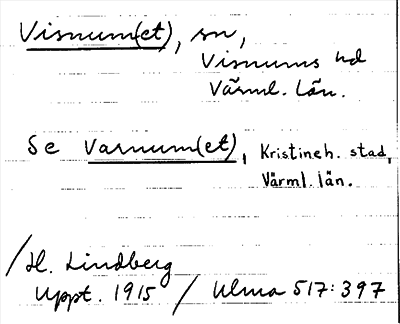 Visnum(et), sn,
Visnums hd
Värml. län.
Se Varnum(et), Kristineh. stad,
Värml. län.
/H. Lindberg
Uppt. 1915 / Ulma 517:397